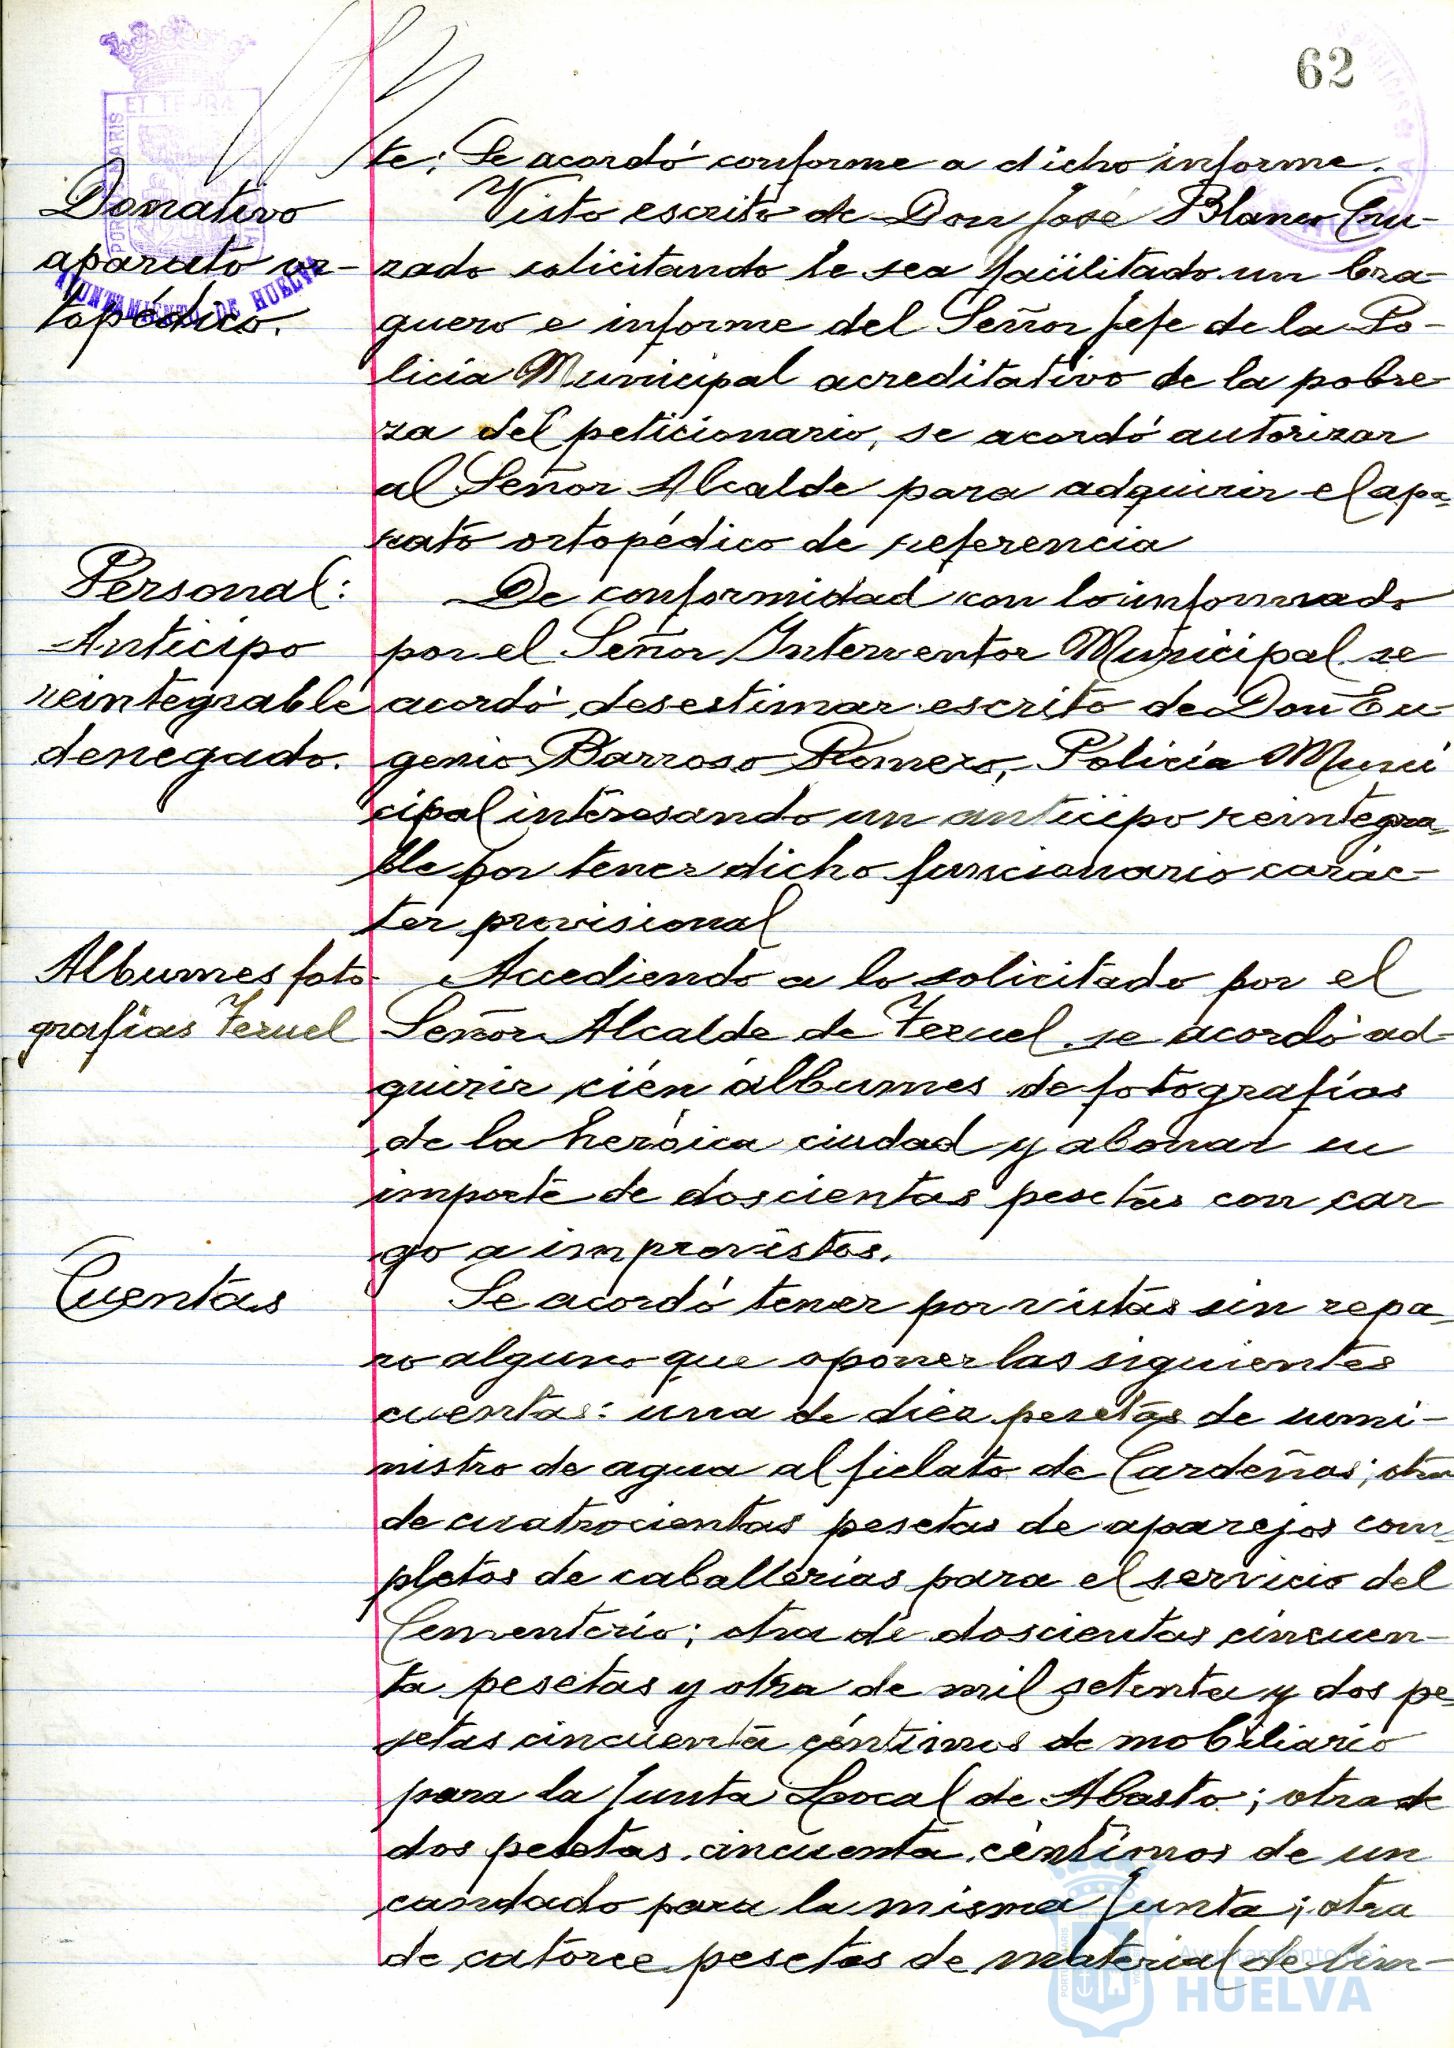 62
te; Se acordó conforme a dicho informe.
Donativo
aparato or-
topédico.
Visto escrito de Don José Blanco Cru-
zado solicitando le sea facilitado un bra-
guero e informe del Señor Jefe de la Po-
licia Municipal acreditativo de la pobre-
za del peticionario, se acordó autorizar
al Señor Alcalde para adquirir el apa-
rato ortopédico de referencia
Personal:
Anticipo
reintegrable
denegado.
De conformidad con lo informado
por el Señor Interventor Municipal se
acordó desestimar escrito de Don Eu-
genio Barroso Romero, Policía Muni
cipal interesando un anticipo reintegra-
ble por tener dicho funcionario carác-
ter provisional
Albumes foto-
grafías Teruel
Accediendo a lo solicitado por el
Señor Alcalde de Teruel se acordó ad-
quirir cién álbumes de fotografías
de la heróica ciudad y abonar su
importe de doscientas pesetas con car
go a imprevistos.
Cuentas
Se acordó tener por vistas sin repa-
ro alguno que oponer las siguientes
cuentas: una de diez pesetas de sumi-
nistro de agua al fielato de Cardeñas; otra
de cuatrocientas pesetas de aparejos com-
pletos de caballerías para el servicio del
Cementerio; otra de doscientas cincuen-
ta pesetas y otra de mil setenta y dos pe-
setas cincuenta céntimos de mobiliario
para la Junta Local de Abasto; otra de
dos pesetas cincuenta céntimos de un
candado para la misma Junta; otra
de catorce pesetas de material de lim-
AYUNTAMIENTO DE HUELVA
Ayuntamiento de
HUELVA